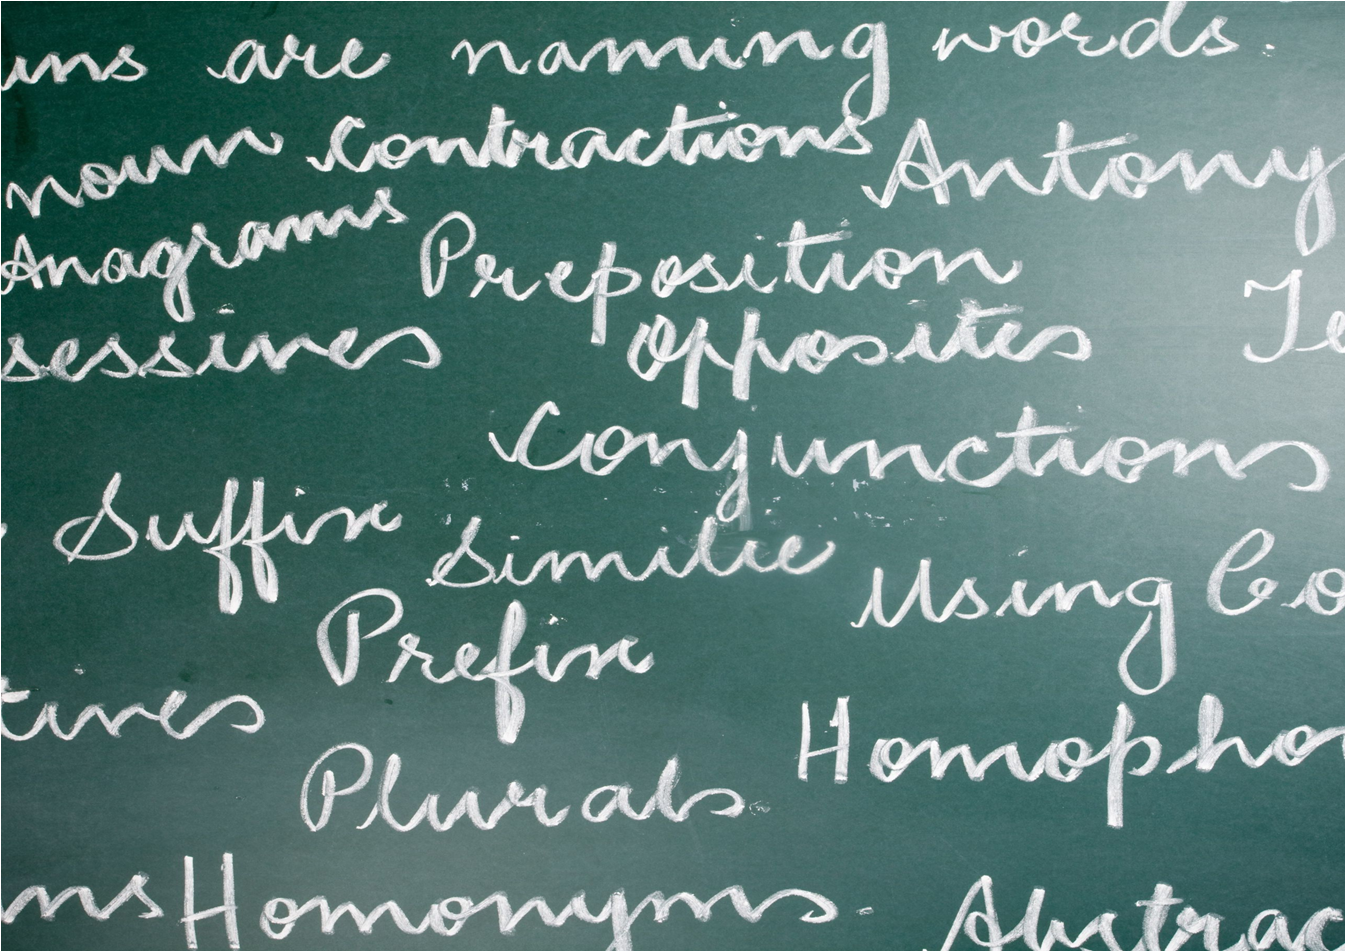 uns are naming words.
noun Contractions Antony
Anagrams Preposition
sessives opposites Te
Conjunctions
Suffix Similie Using Co
Prefix
tives Homopho
Plurals
ms Homonyms. Abstrac